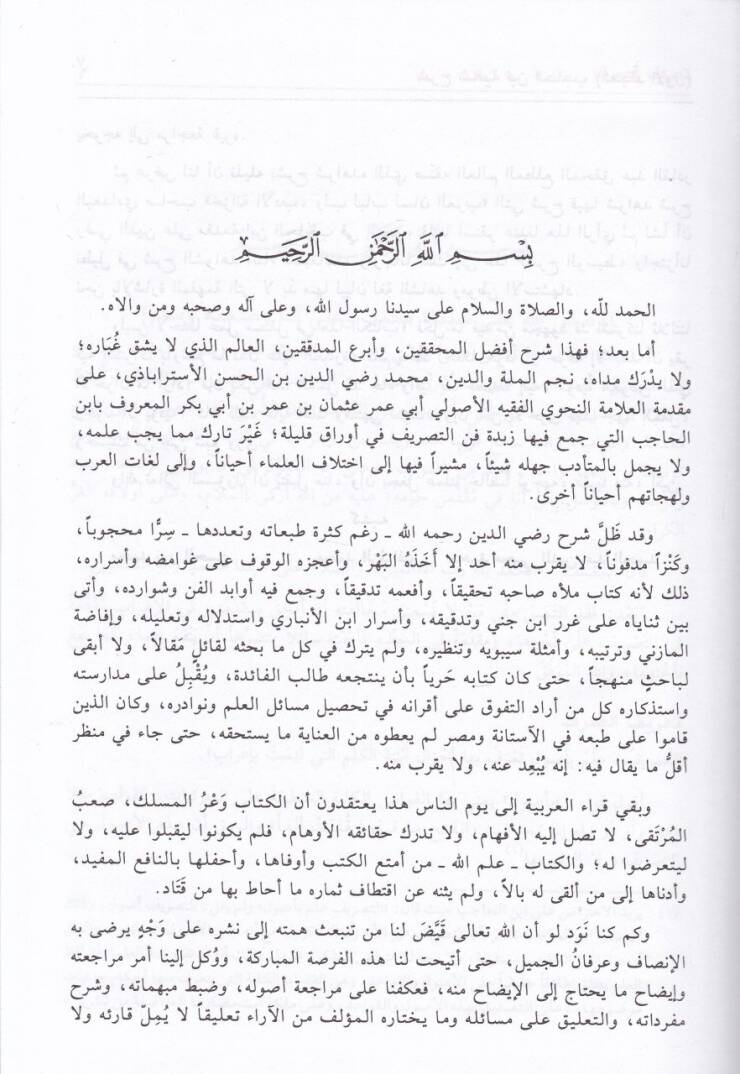 بِسْمِ ٱللَّهِ ٱلرَّحْمَٰنِ ٱلرَّحِيمِ
الحمد للّه، والصلاة والسلام على سيدنا رسول الله، وعلى آله وصحبه ومن والاه.
أما بعد؛ فهذا شرح أفضل المحققين، وأبرع المدققين، العالم الذي لا يشق غُبَاره؛
ولا يدْرَك مداه، نجم الملة والدين، محمد رضي الدين بن الحسن الأستراباذي، على
مقدمة العلامة النحوي الفقيه الأصولي أبي عمر عثمان بن عمر بن أبي بكر المعروف بابن
الحاجب التي جمع فيها زبدة فن التصريف في أوراق قليلة؛ غَيْرَ تارك مما يجب علمه،
ولا يجمل بالمتأدب جهله شيئاً، مشيراً فيها إلى اختلاف العلماء أحياناً، وإلى لغات العرب
ولهجاتهم أحياناً أخرى.
وقد ظَلَّ شرح رضي الدين رحمه الله ـ رغم كثرة طبعاته وتعددها ـ سِرًّا محجوباً،
وكَنْزاً مدفوناً، لا يقرب منه أحد إلا أَخَذَهُ البَهْر، وأعجزه الوقوف على غوامضه وأسراره،
ذلك لأنه كتاب ملأه صاحبه تحقيقاً، وأفعمه تدقيقاً، وجمع فيه أوابد الفن وشوارده، وأتى
بين ثناياه على غرر ابن جني وتدقيقه، وأسرار ابن الأنباري واستدلاله وتعليله، وإفاضة
المازني وترتيبه، وأمثلة سيبويه وتنظيره، ولم يترك في كل ما بحثه لقائلٍ مَقالاً، ولا أبقى
لباحثٍ منهجاً، حتى كان كتابه حَرياً بأن ينتجعه طالب الفائدة، ويُقْبِلُ على مدارسته
واستذكاره كل من أراد التفوق على أقرانه في تحصيل مسائل العلم ونوادره، وكان الذين
قاموا على طبعه في الآستانة ومصر لم يعطوه من العناية ما يستحقه، حتى جاء في منظر
أقلُّ ما يقال فيه: إنه يُبْعِد عنه، ولا يقرب منه.
وبقي قراء العربية إلى يوم الناس هذا يعتقدون أن الكتاب وَعْرُ المسلك، صعبُ
المُرْتَقى، لا تصل إليه الأفهام، ولا تدرك حقائقه الأوهام، فلم يكونوا ليقبلوا عليه، ولا
ليتعرضوا له؛ والكتاب ـ علم الله ـ من أمتع الكتب وأوفاها، وأحفلها بالنافع المفيد،
وأدناها إلى من ألقى له بالاً، ولم يثنه عن اقتطاف ثماره ما أحاط بها من قَتَاد.
وكم كنا نَوَد لو أن الله تعالى قَيَّضَ لنا من تنبعث همته إلى نشره على وَجْهٍ يرضى به
الإنصاف وعرفانُ الجميل، حتى أتيحت لنا هذه الفرصة المباركة، ووُكل إلينا أمر مراجعته
وإيضاح ما يحتاج إلى الإيضاح منه، فعكفنا على مراجعة أصوله، وضبط مبهماته، وشرح
مفرداته، والتعليق على مسائله وما يختاره المؤلف من الآراء تعليقاً لا يُمِلّ قارئه ولا